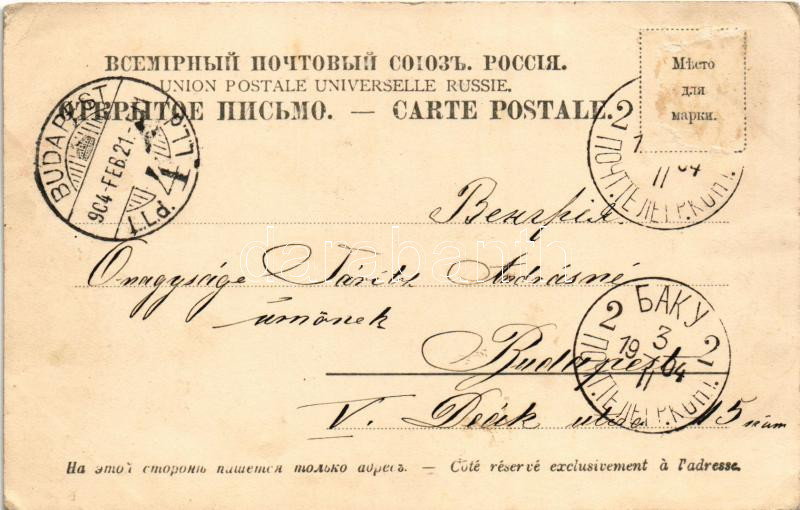 ВСЕМІРНЫЙ ПОЧТОВЫЙ СОЮЗЪ. РОССІЯ.
UNION POSTALE UNIVERSELLE RUSSIE.
ОТКРЫТОЕ ПИСЬМО. — CARTE POSTALE.
Мѣсто
для
марки.
BUDAPEST
904-FEB.21
4
2
ПОЧТ.ТЕЛЕГР.КОНТ.
II 04
Венгрія.
Onagysága Andrásné
darabanth
БАКУ
2 3 2
19 04
II
ПОЧТ.ТЕЛЕГР.КОНТ.
Budapest
V. Deák utca 15 szám
На этой сторонѣ пишется только адресъ. — Côté réservé exclusivement à l'adresse.